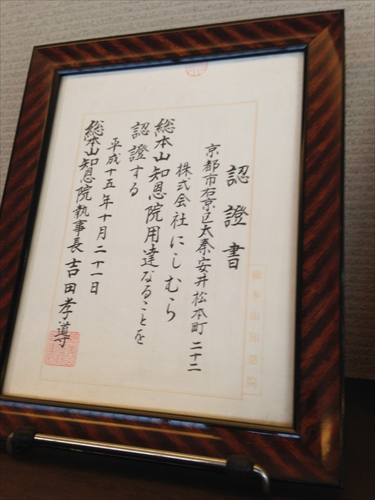 認證書
京都市右京区太秦安井松本町二十二
株式会社にしむら
総本山知恩院用達なることを
認證する
平成十五年十月二十一日
総本山知恩院執事長吉田孝導
総本山知恩院